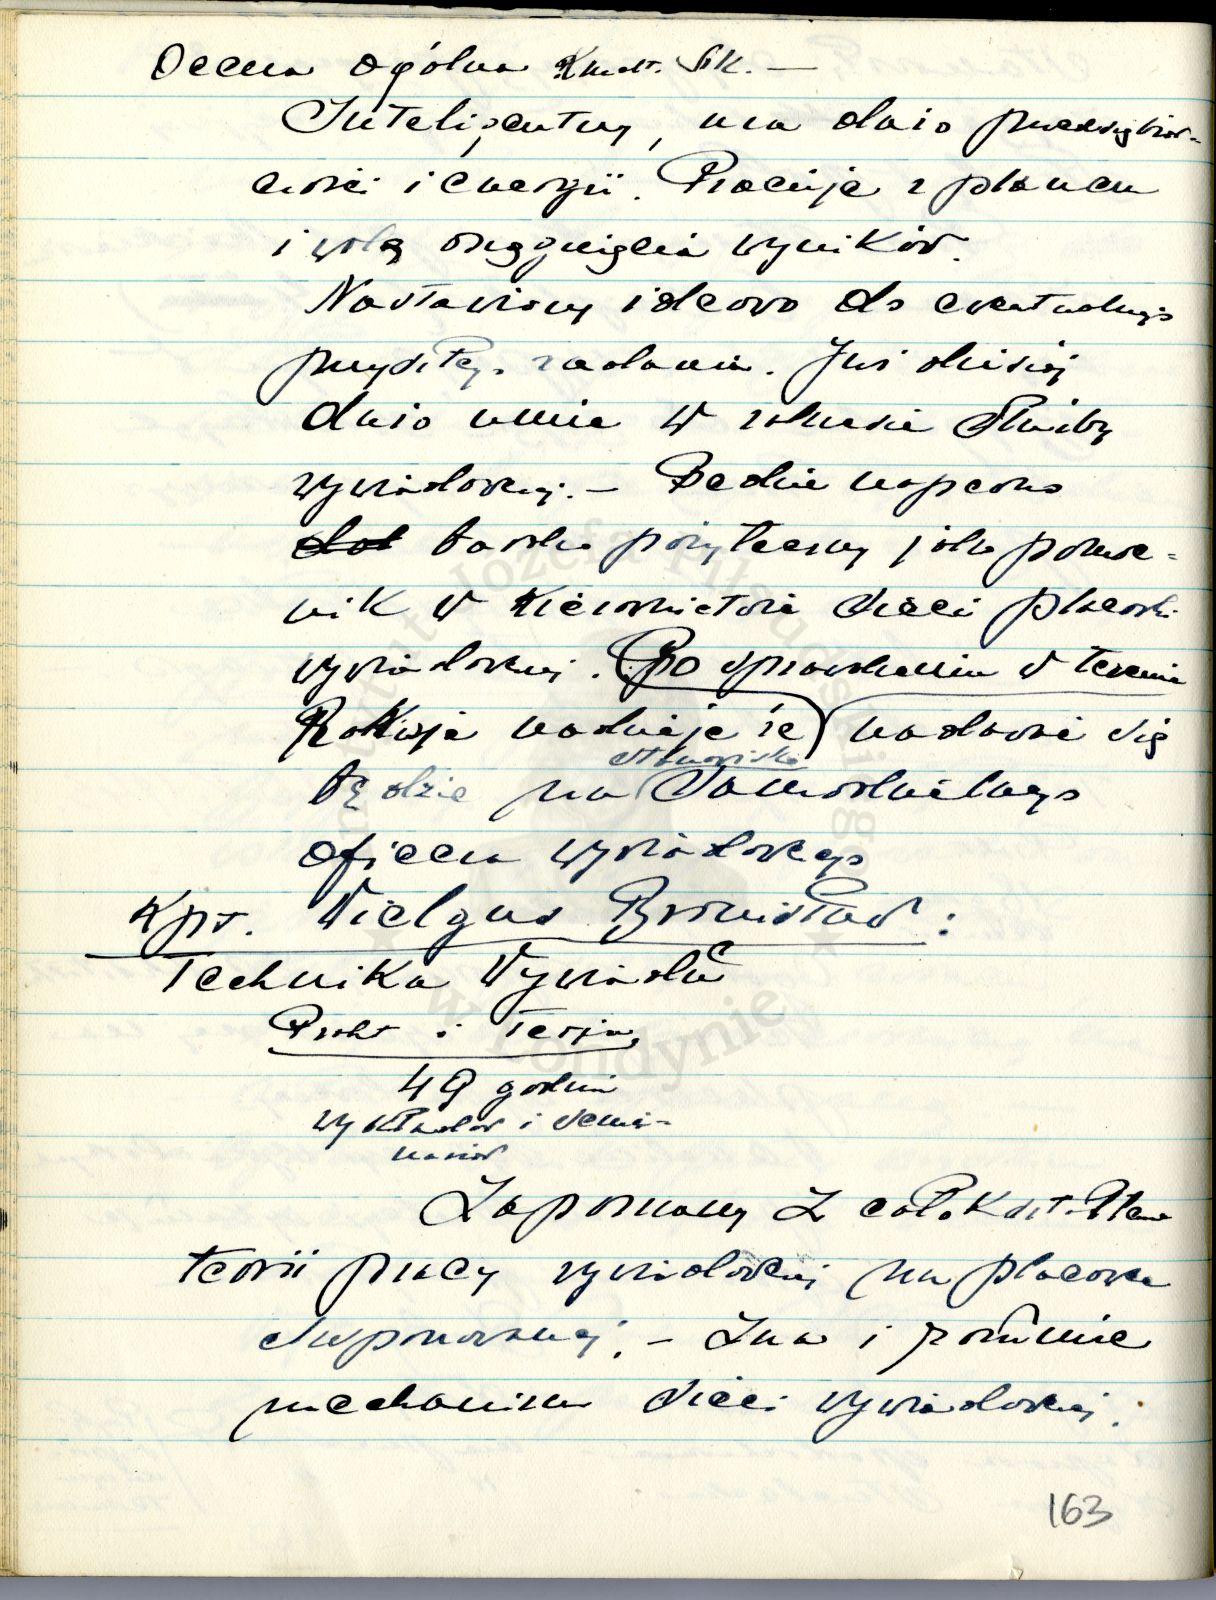 Ocena ogólna Kmdt. SK. —
Inteligentny, ma dużo przedsiębior-
czości i energii. Pracuje z planem
i wolą osiągnięcia wyników.
Nastawiony ideowo do ewentualnego
przyszłej. zadania. Już dzisiaj
dużo umie w zakresie służby
wywiadowczej. — Będzie napewno
bardzo pożyteczny jako pomoc-
nik w kierownictwie sieci placówki
wywiadowczej. Po sprawdzeniu w terenie
Rokuje nadzieje że nadawać się
będzie na stanowisko samodzielnego
oficera wywiadowczego
Kpt. Wielgus Bronisław:
Technika Wywiadu
Prakt i Teorja,
49 godzin
wykładów i semi-
nariów
Zapoznany z całokształtem
teorii pracy wywiadowczej na placówce
eksponowanej. — Zna i rozumie
mechanizm sieci wywiadowczej.
163
Instytut Józefa Piłsudskiego
w Londynie